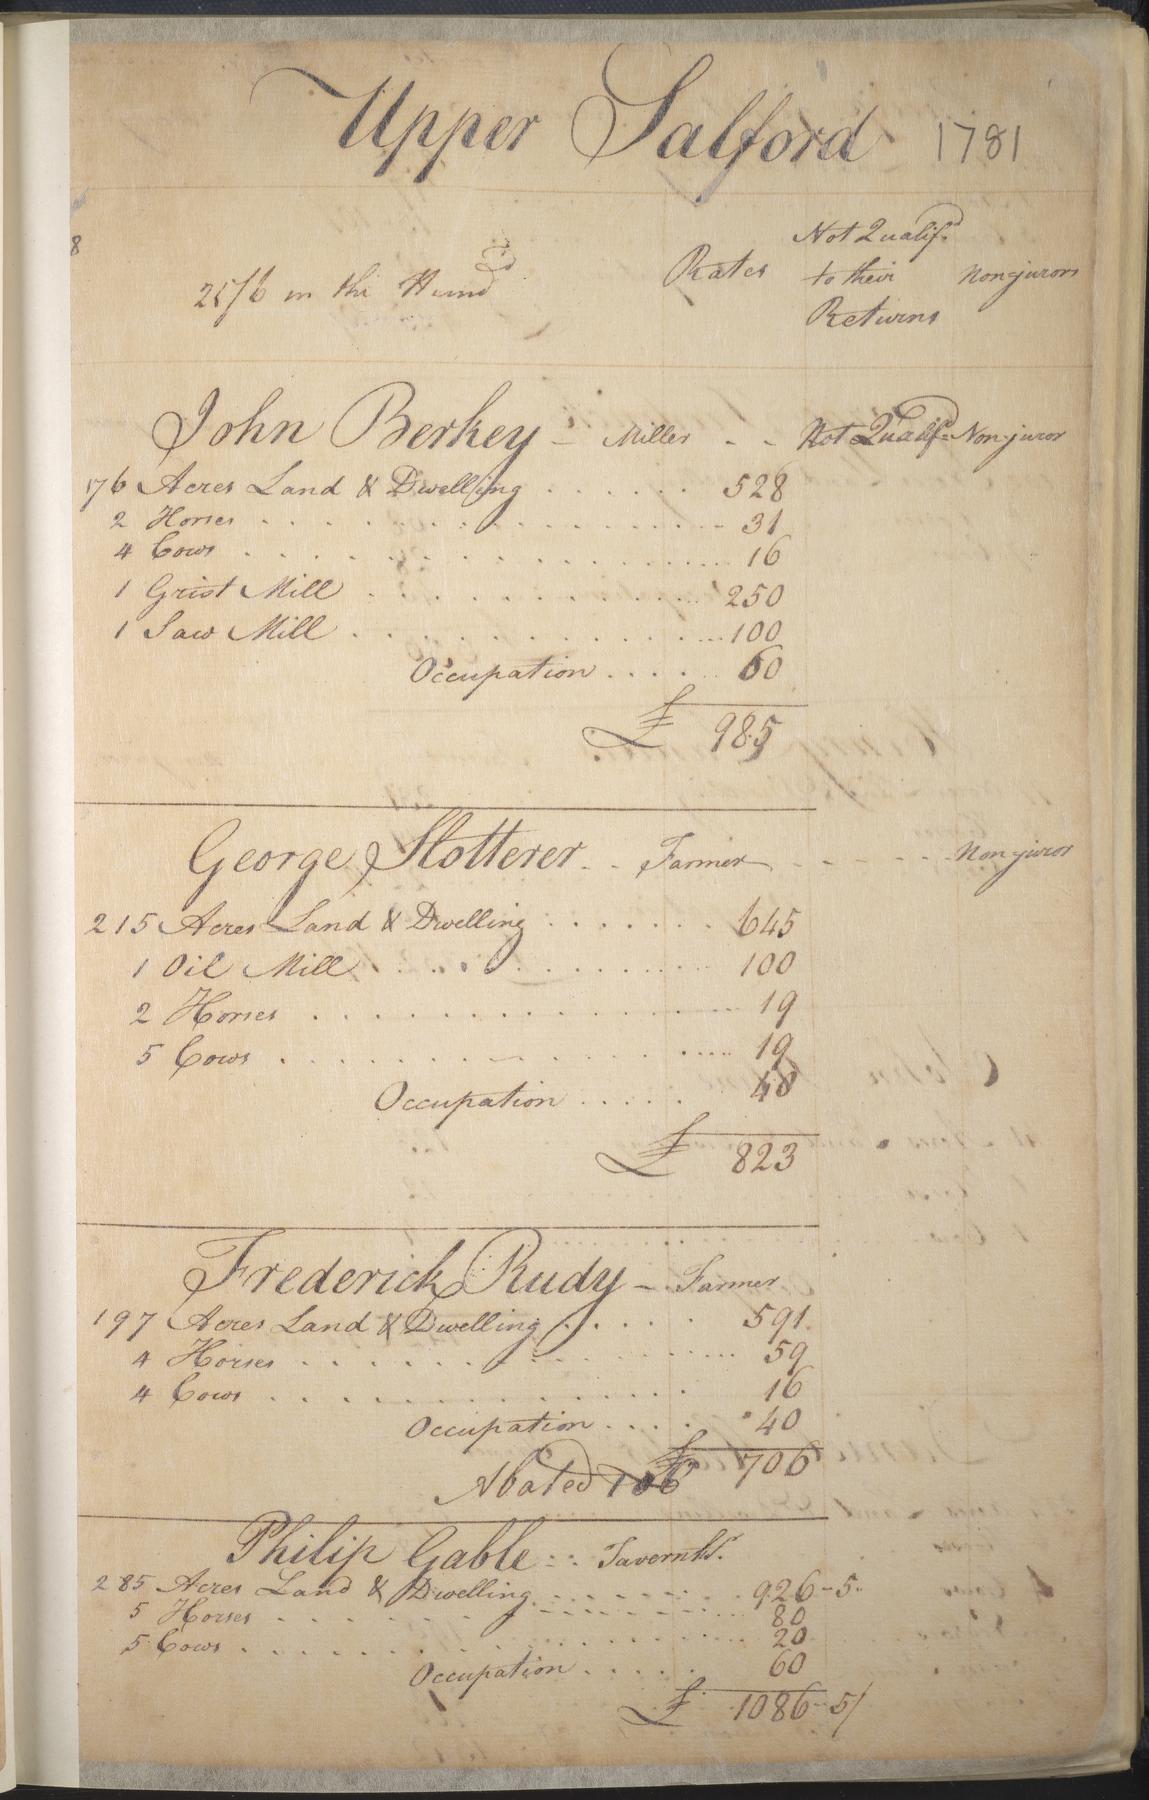 Upper Salford 1781
8
25/6 in the Hundd
Rates
Not Qualifd
to their
Returns
Nonjurors
John Berkey - Miller - - Not Qualifd Non-juror
176 Acres Land & Dwelling . . . . . . 528
2 Horses . . . . . . . . . . 31
4 Cows . . . . . . . . . . 16
1 Grist Mill . . . . . . . . . 250
1 Saw Mill . . . . . . . . . 100
Occupation . . . . . 60
£ 985
George Slotterer - - Farmer - - - - - Non-juror
215 Acres Land & Dwelling . . . . . . 645
1 Oil Mill . . . . . . . . . 100
2 Horses . . . . . . . . . . 19
5 Cows . . . . . . . . . . 19
Occupation . . . . . 40
£ 823
Frederick Rudy - Farmer
197 Acres Land & Dwelling . . . . . 591
4 Horses . . . . . . . . . . 59
4 Cows . . . . . . . . . . 16
Occupation . . . . 40
£ 706
Abated 106
Philip Gable - : Tavernkr.
285 Acres Land & Dwelling . . . . . . 926-5
5 Horses . . . . . . . . . . 80
5 Cows . . . . . . . . . . 20
Occupation . . . . . 60
£ 1086-5/